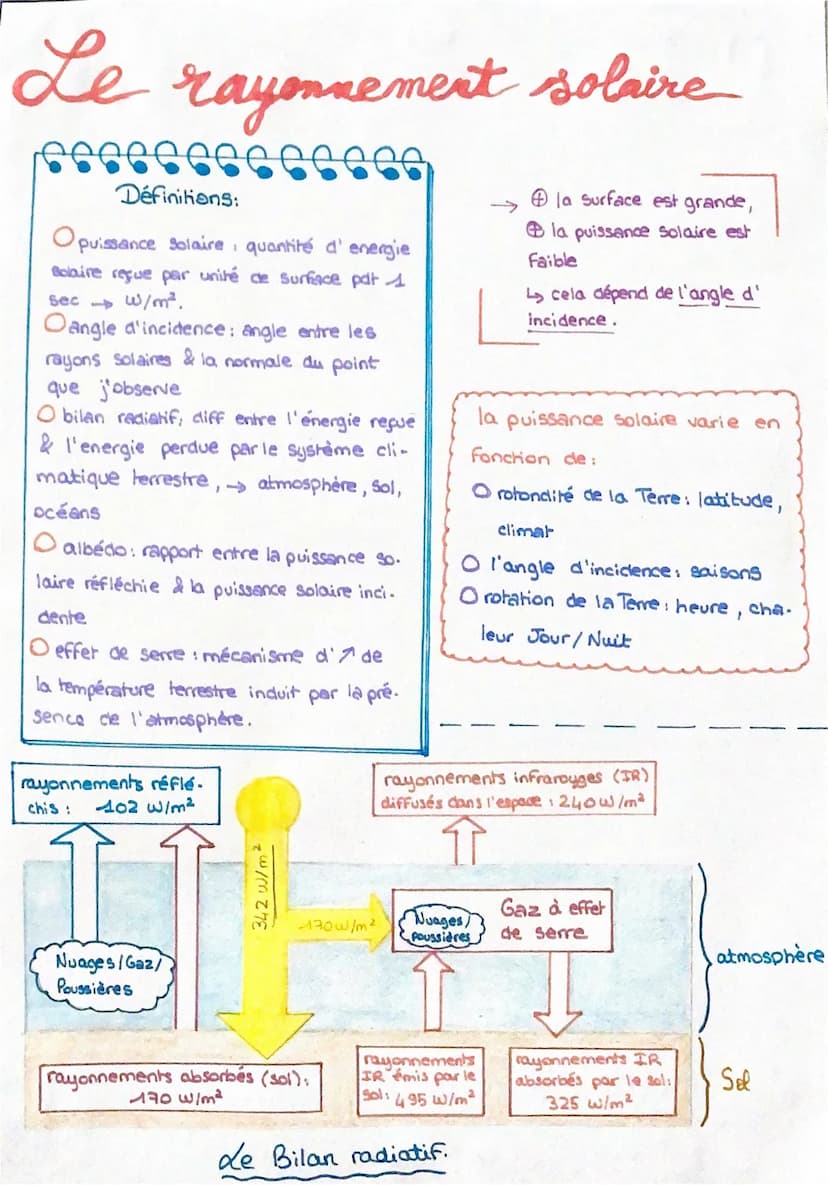 Le rayonnement solaire
Définitions:
O puissance solaire : quantité d'energie
solaire reçue par unité de surface pdt 1
sec → W/m².
O angle d'incidence : angle entre les
rayons solaires & la normale du point
que j'observe
O bilan radiatif : diff entre l'énergie reçue
& l'energie perdue par le système cli-
matique terrestre, → atmosphère, sol,
océans
O albédo : rapport entre la puissance so-
laire réfléchie & la puissance solaire inci-
dente
O effet de serre : mécanisme d'↗ de
la température terrestre induit par la pré-
sence de l'atmosphère.
→ ⊕ la surface est grande,
⊕ la puissance solaire est
faible
↳ cela dépend de l'angle d'
incidence.
la puissance solaire varie en
fonction de :
O rotondité de la Terre : latitude,
climat
O l'angle d'incidence : saisons
O rotation de la Terre : heure, cha-
leur Jour/Nuit
rayonnements réflé-
chis : 102 W/m²
rayonnements infrarouges (IR)
diffusés dans l'espace : 240 W/m²
342 W/m²
170 W/m²
Nuages/
poussières
Gaz à effet
de serre
Nuages/Gaz/
Poussières
atmosphère
rayonnements absorbés (sol) :
170 W/m²
rayonnements
IR émis par le
sol : 495 W/m²
rayonnements IR
absorbés par le sol :
325 W/m²
Sol
Le Bilan radiatif.